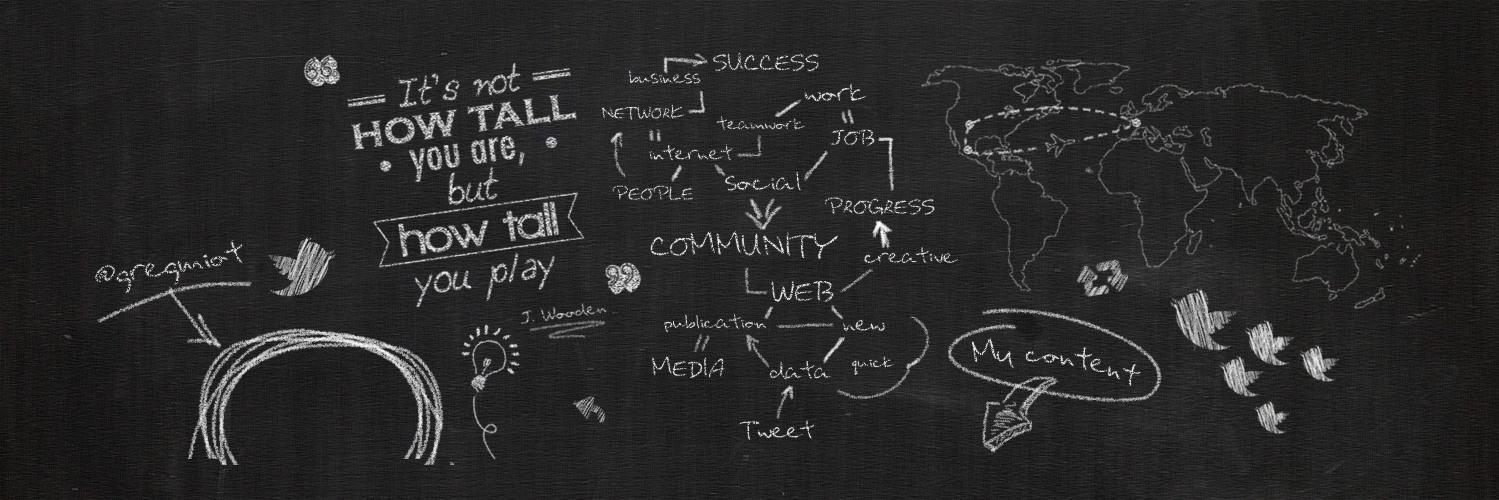 It's not
HOW TALL
you are,
but
how tall
you play
J. Wooden
@gregmiat
business
SUCCESS
NETWORK
teamwork
work
internet
JOB
PEOPLE
Social
PROGRESS
COMMUNITY
creative
WEB
publication
new
MEDIA
data
quick
Tweet
My content